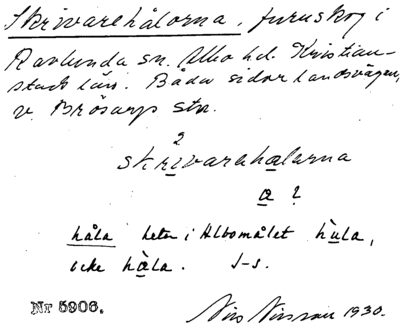 Skrivarehålorna, furuskog i
Ravlunda sn. Albo hd. Kristian-
stads län. Båda sidor landsvägen,
v. Brösarps stn.
2
skrivarehalerna
a ?
håla heter i Albomålet hùla,
icke hàla. J-s.
Nr 5906.
Nils Nilsson 1930.